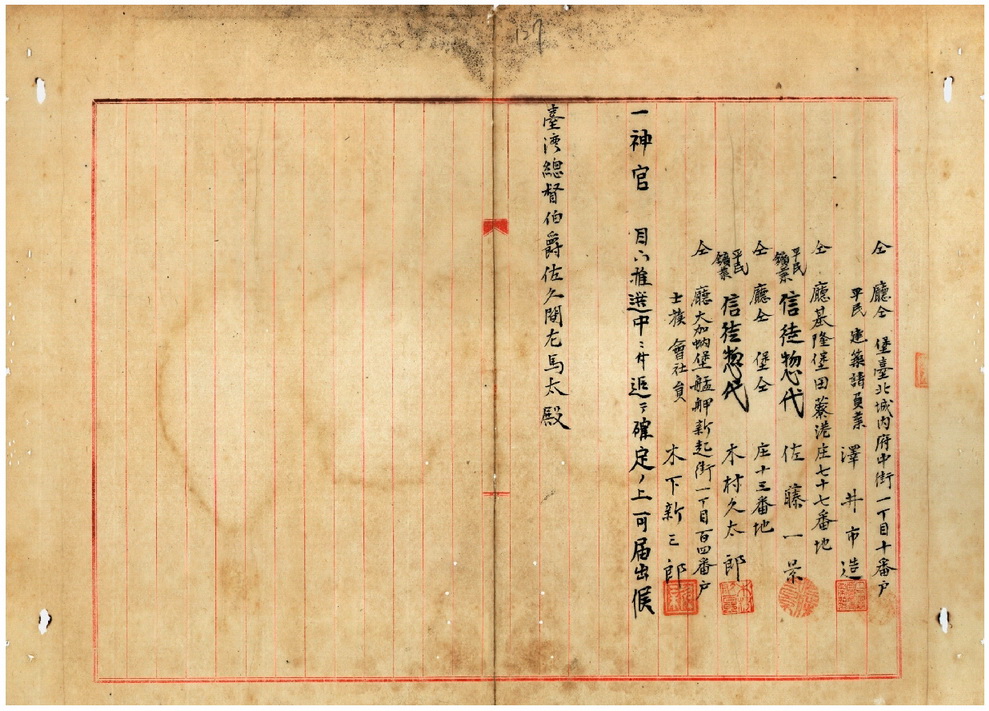 137
仝 廳仝 堡臺北城内府中街一丁目十番戶
平民 建築請負業 澤井市造
仝 廳基隆堡田蓼港庄七十七番地
平民 鑛業 信徒惣代 佐藤一景
仝 廳仝 堡仝 庄十三番地
平民 鑛業 信徒惣代 木村久太郎
仝 廳大加蚋堡艋舺新起街一丁目百四番戶
士族 會社員 木下新三郎
一神官 目下推選中ニ付追テ確定ノ上可届出候
臺灣總督伯爵佐久間左馬太殿